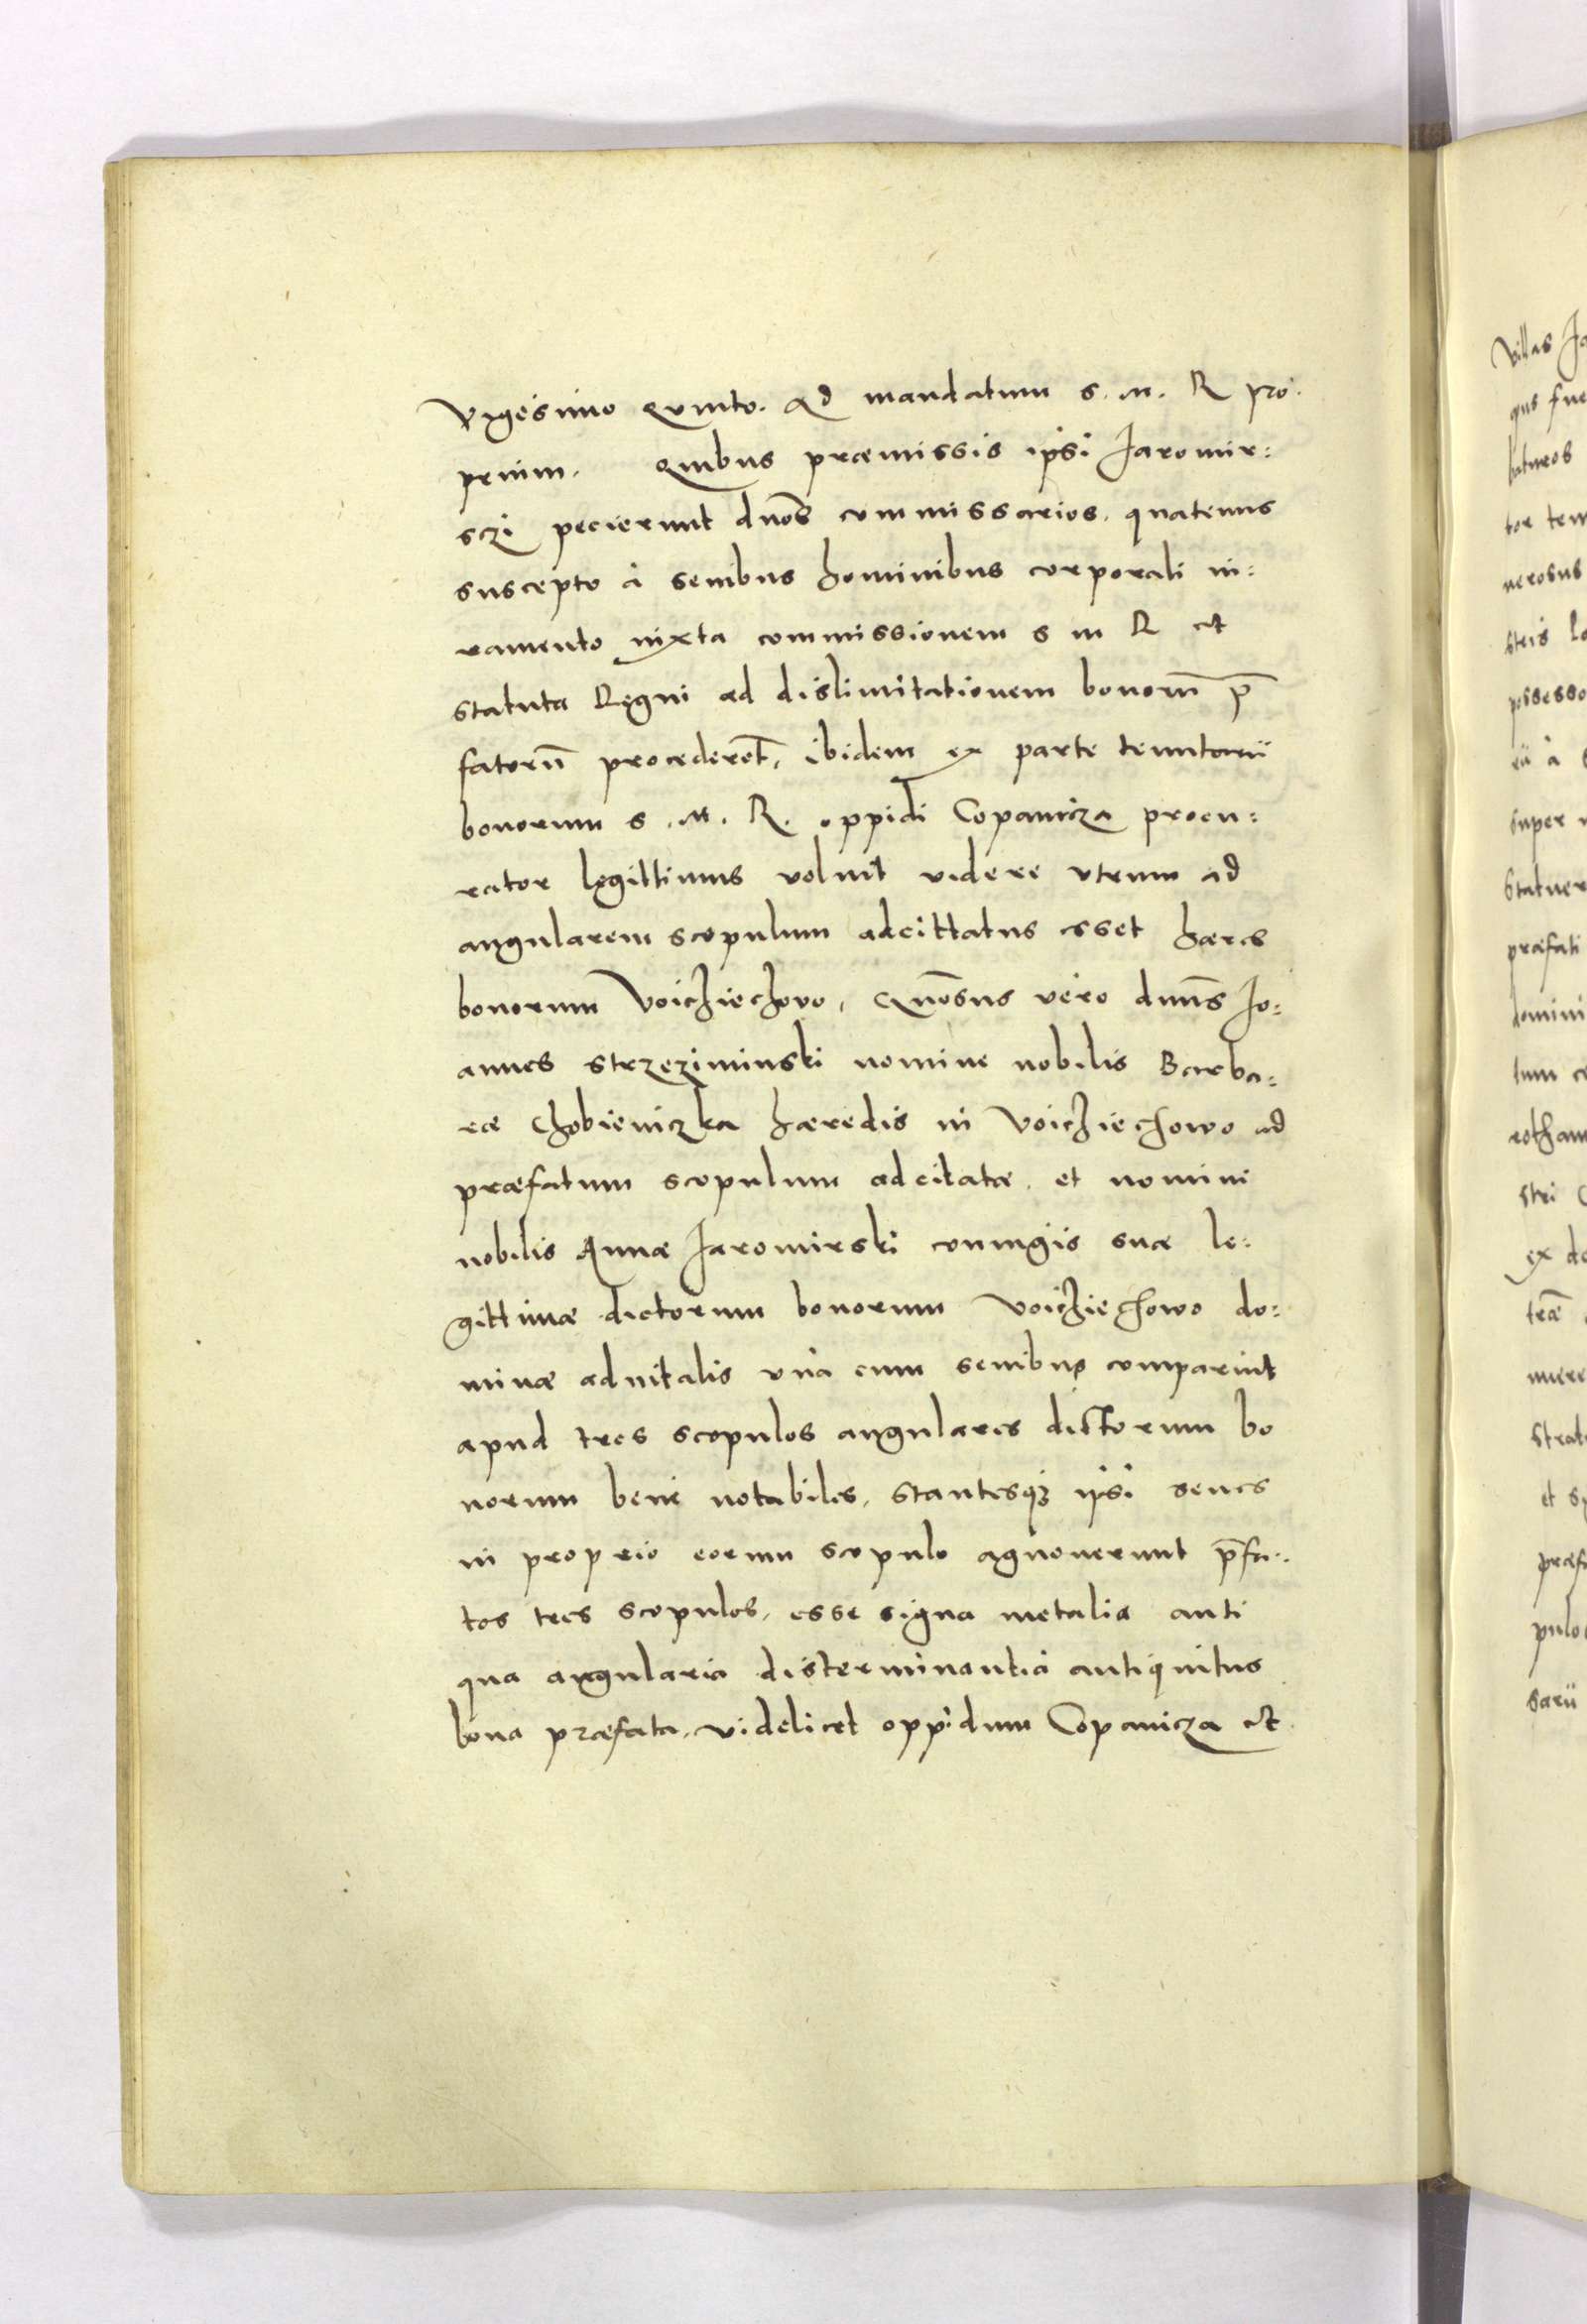 Vigesimo Quinto. Ad mandatum S. M. R pro.
prium. Quibus præmissis ipsi Jaromir:
sczi pecierunt dnos commissarios, quatenus
suscepto à senibus hominibus corporali iu:
ramento iuxta commissionem S M R et
statuta Regni ad dislimitationem bonorum p̄
fatorum̄ procederēt, ibidem ex parte tenutarii
bonorum S. M. R. oppidi Copanicza procu:
rator legittimus voluit videre utrum ad
angularem scopulum adcittatus esset hæres
bonorum Voichiechovo, Gnosus vero dnns Jo:
annes Strzeziminski nomine nobilis Barba:
ræ Chobieniczka hæredis in Voichiechowo ad
præfatum scopulum adcitatæ, et nomini
nobilis Annæ Jaromirski coniugis suæ le:
gittimæ dictorum bonorum Voichiechowo do:
minæ advitalis unà cum senibus comparuit
apud tres scopulos angulares dictorum bo
norum bene notabiles, stantesq3 ipsi senes
in proprio eorum scopulo agnoverunt p̄fa:
tos tres scopulos, esse signa metalia anti
qua angularia disterminantia antiquitus
bona præfata, videlicet oppidum Copanicza et
Villas Ja
qus fue
batueos
tor ten
nerosus
steis lo
possesso
rii à
super
statuer
præfati
domini
lum
rotham
stri
ex do
træ
muere
strat
et sp
præf
pulo
sarii